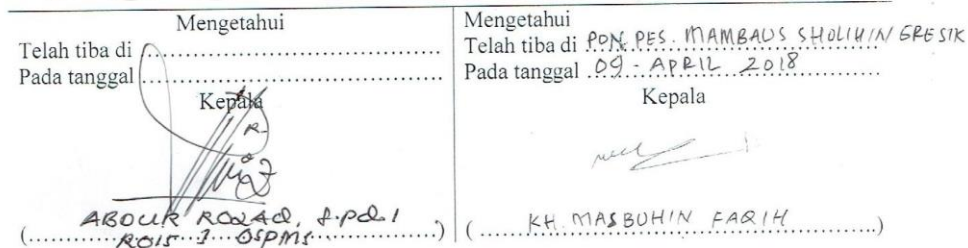 Mengetahui
Telah tiba di ........................................
Pada tanggal ........................................
Kepala
ABDUR ROZAQ, S.Pd.I
(ROIS I OSPMS)
Mengetahui
Telah tiba di PON. PES. MAMBAUS SHOLIHIN / GRESIK
Pada tanggal 09 - APRIL 2018
Kepala
(KH. MASBUHIN FAQIH)